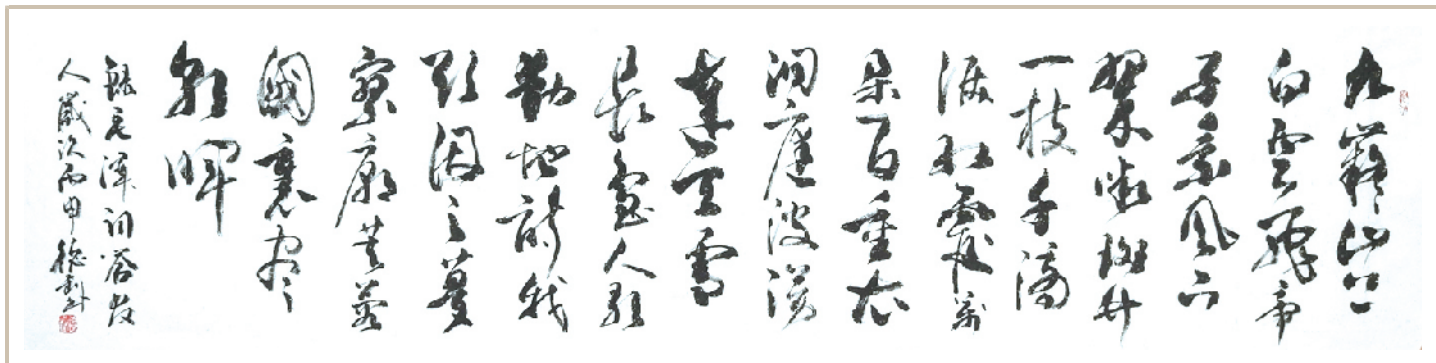 九嶷山上
白雲飛帝
子乘風下
翠微斑竹
一枝千滴
淚紅霞萬
朵百重衣
洞庭波涌
連天雪
長島人歌
動地詩我
欲因之夢
寥廓芙蓉
國裏尽
朝暉
錄毛澤詞答友
人歲次丙申